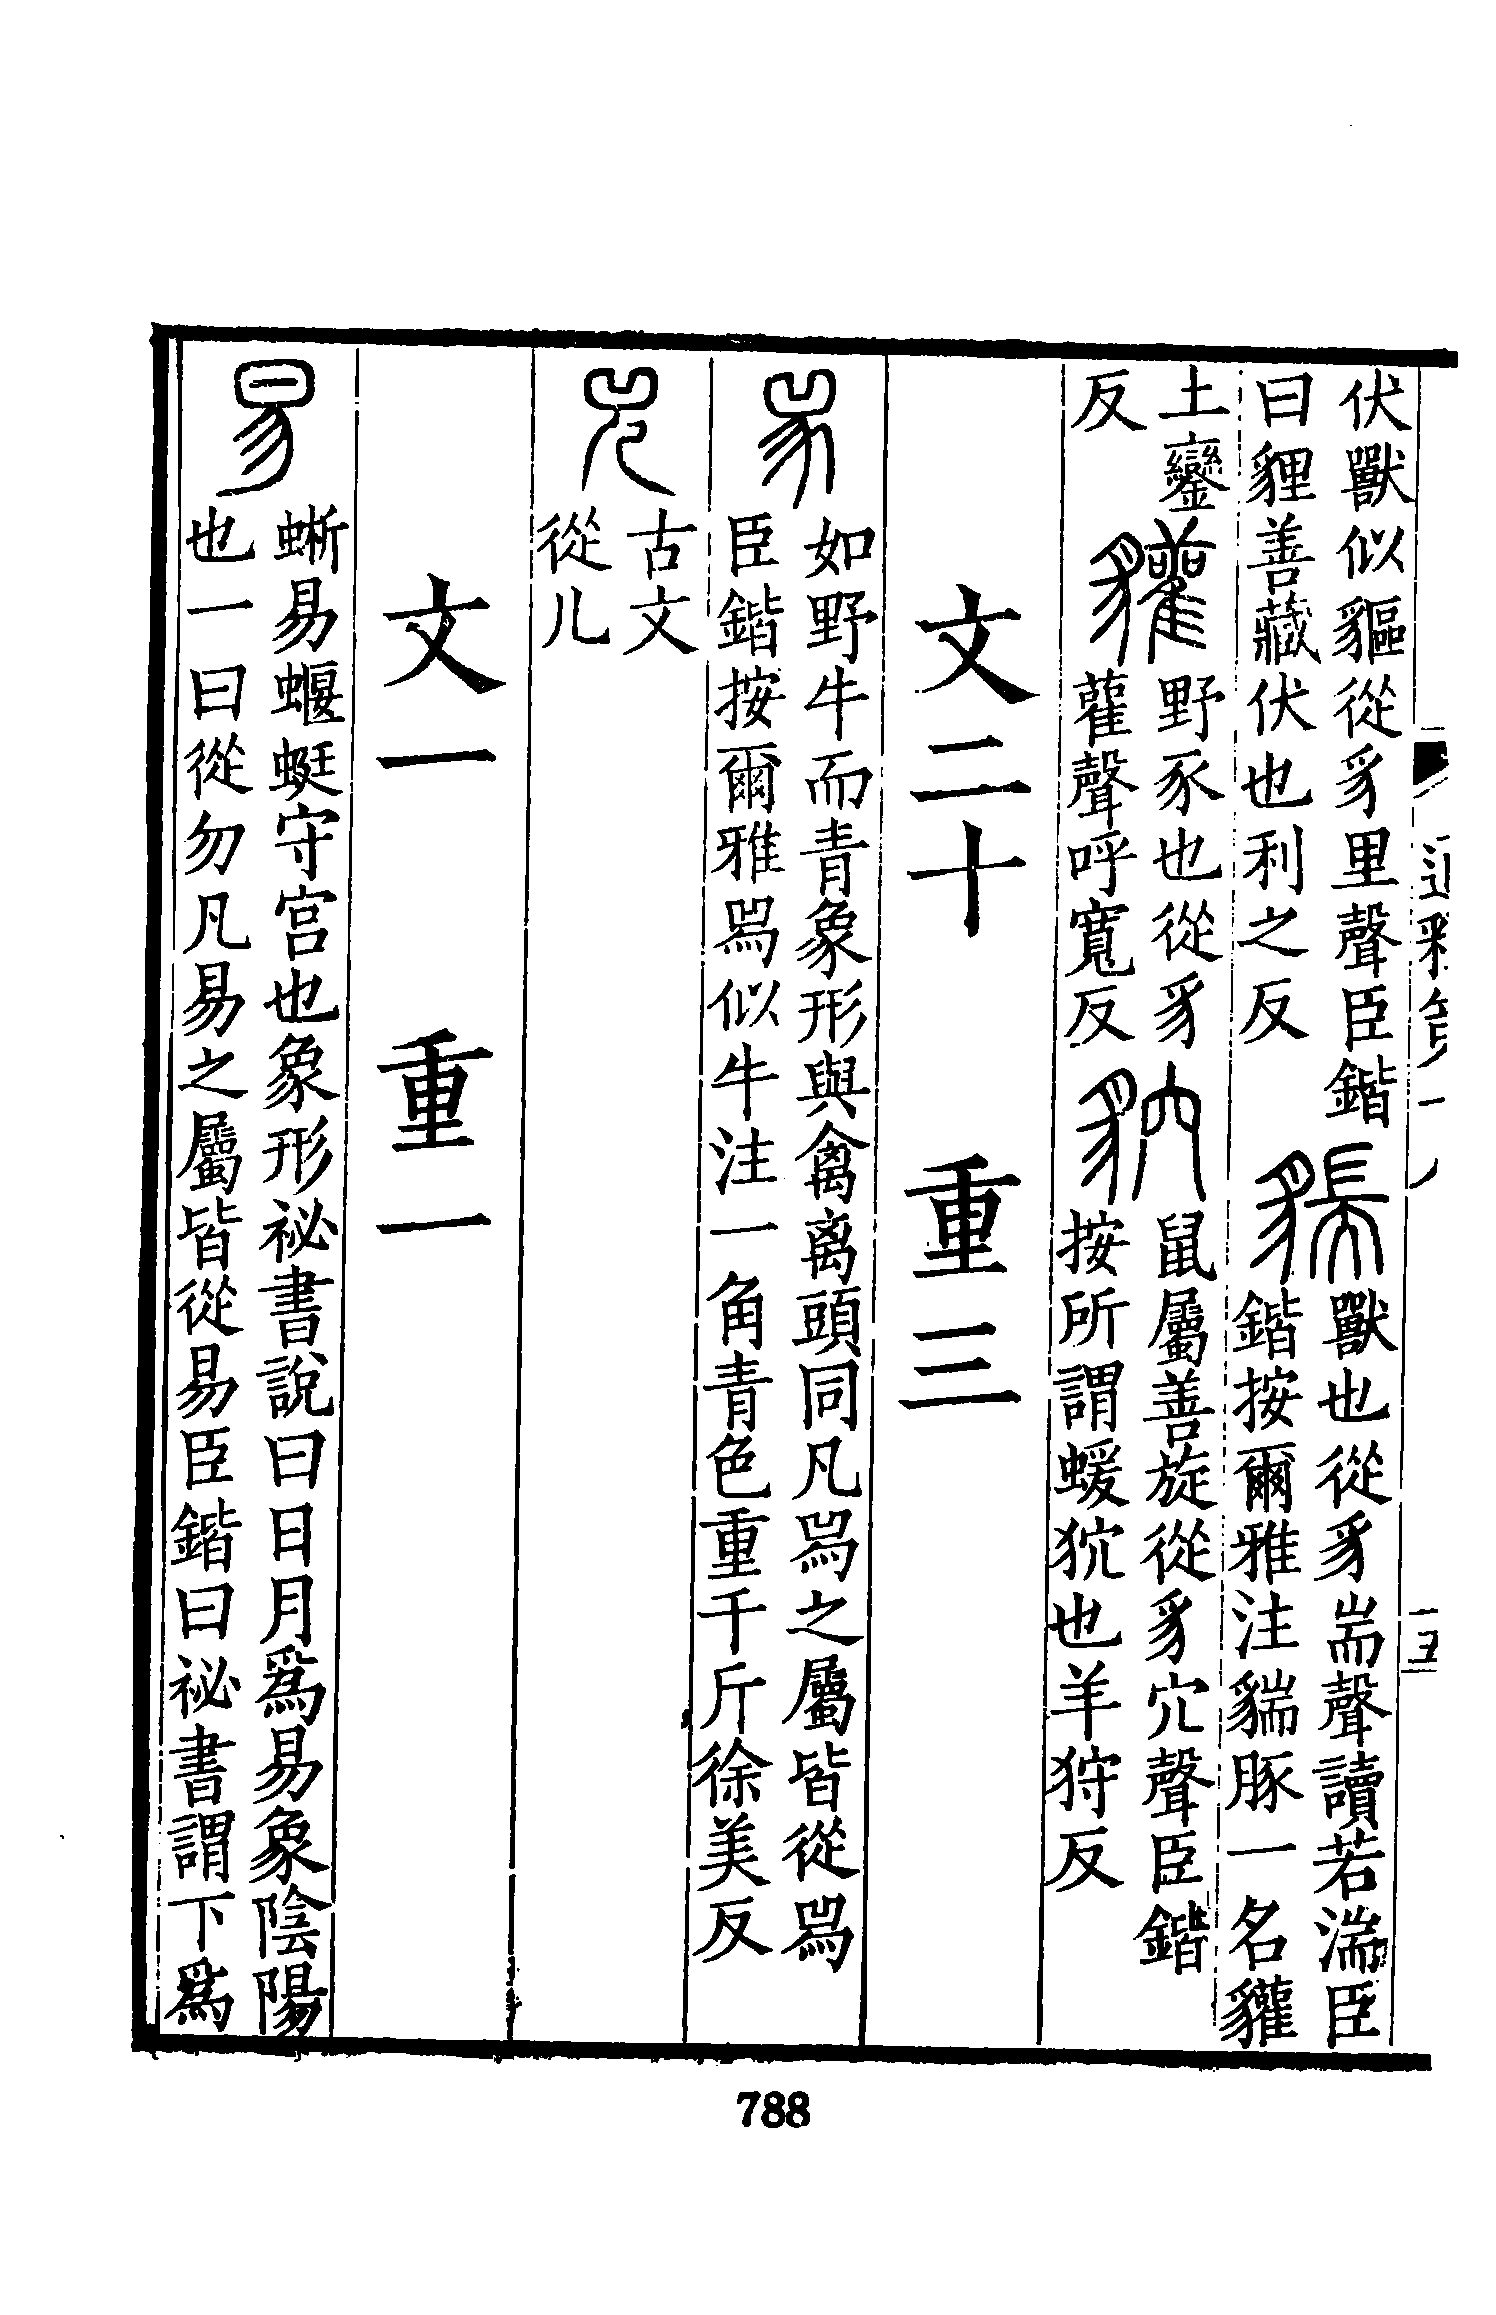 伏獸似貙從豸里聲臣鍇
曰貍善藏伏也利之反
貒
獸也從豸耑聲讀若湍臣
鍇按爾雅注貒豚一名貛
土鑾
反
貛
野豕也從豸
雚聲呼寬反
貁
鼠屬善旋從豸穴聲臣鍇
按所謂蝯狖也羊狩反
文二十　重三
𤉡
如野牛而青象形與禽离頭同凡𤉡之屬皆從𤉡
臣鍇按爾雅𤉡似牛注一角青色重千斤徐美反
兕
古文
從儿
文一　重一
易
蜥易蝘蜓守宫也象形祕書說曰日月爲易象陰陽
也一曰從勿凡易之屬皆從易臣鍇曰祕書謂下爲
788